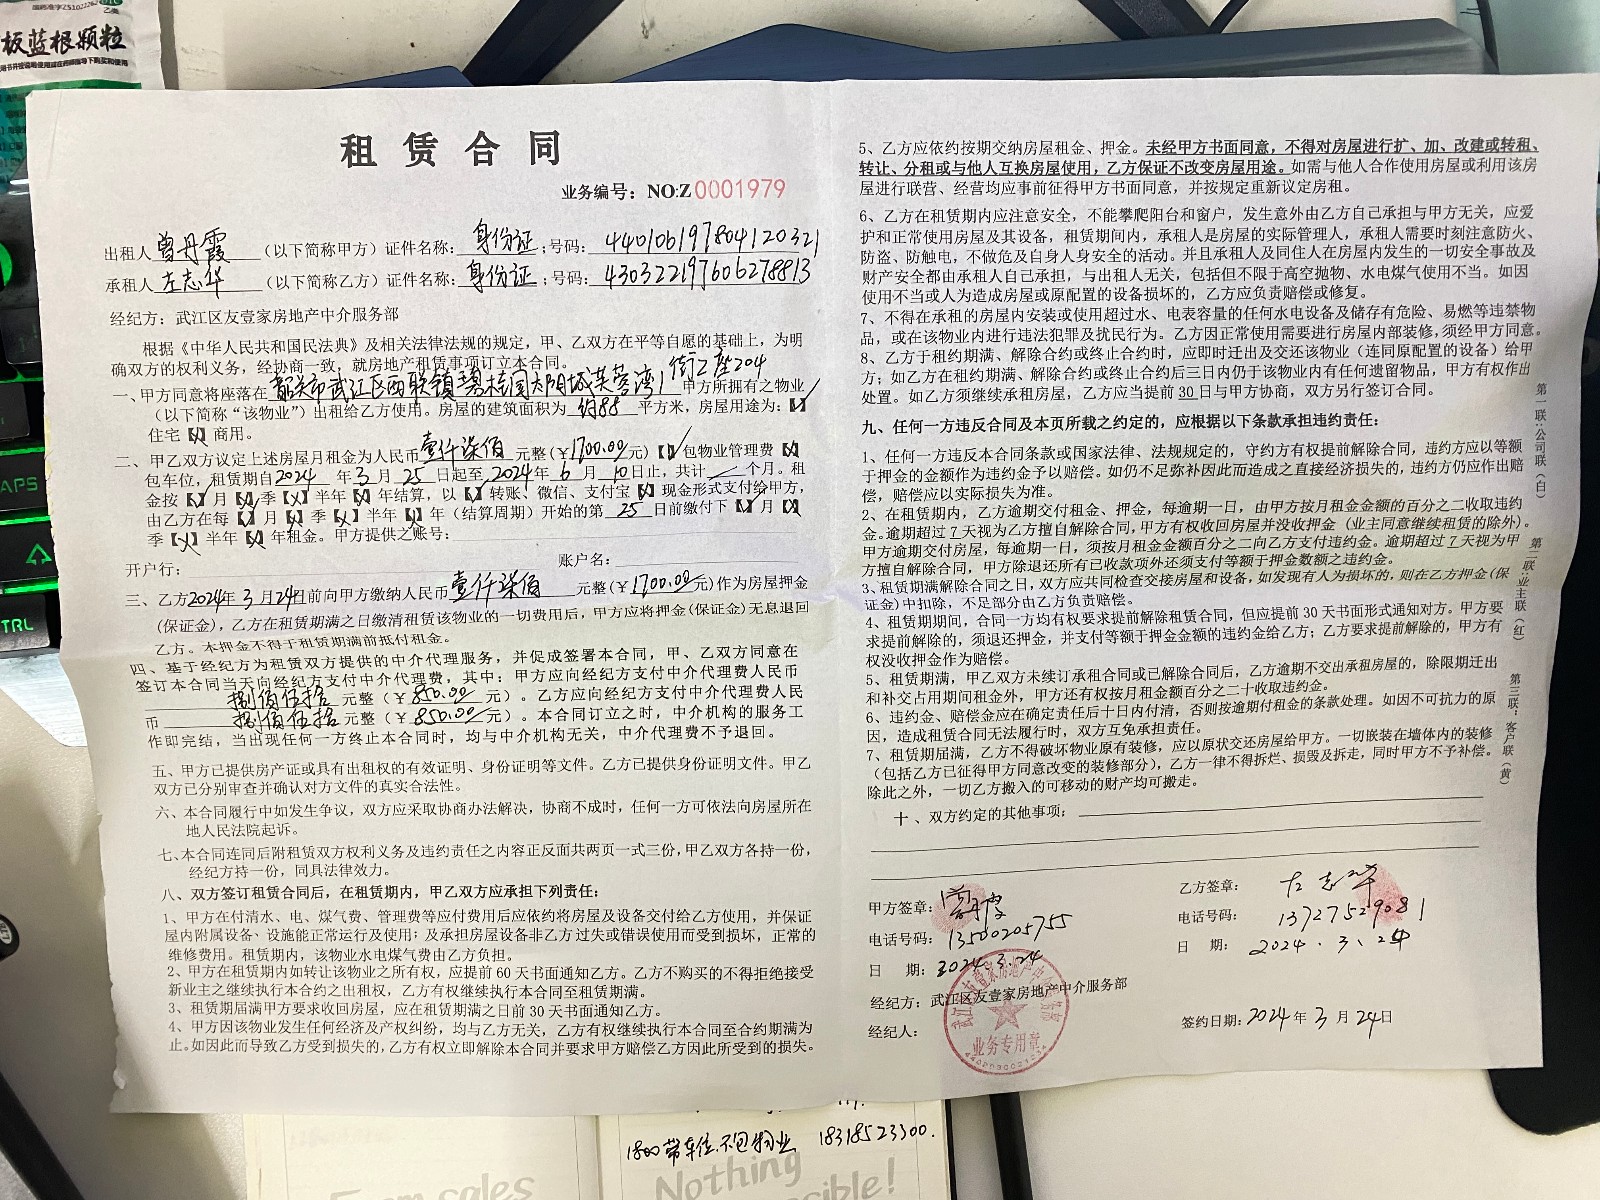 国药准字Z51022262
乙类
板蓝根颗粒
租赁合同
业务编号：NO:Z0001979
出租人曾丹霞（以下简称甲方）证件名称：身份证；号码：440106197804120321
承租人左志华（以下简称乙方）证件名称：身份证；号码：430322197606278813
经纪方：武江区友壹家房地产中介服务部
根据《中华人民共和国民法典》及相关法律法规的规定，甲、乙双方在平等自愿的基础上，为明
确双方的权利义务，经协商一致，就房地产租赁事项订立本合同。
一、甲方同意将座落在韶关市武江区西联镇碧桂园太阳城芙蓉湾1街2座204甲方所拥有之物业
（以下简称“该物业”）出租给乙方使用。房屋的建筑面积为约88平方米，房屋用途为：【✓】
住宅【×】商用。
二、甲乙双方议定上述房屋月租金为人民币壹仟柒佰元整（￥1700.00元）【✓】包物业管理费【×】
包车位，租赁期自2024年3月25日起至2024年6月10日止，共计／个月。租
金按【✓】月【×】季【×】半年【×】年结算，以【✓】转账、微信、支付宝【×】现金形式支付给甲方，
由乙方在每【✓】月【×】季【×】半年【×】年（结算周期）开始的第25日前缴付下【✓】月【×】
季【×】半年【×】年租金。甲方提供之账号：
开户行： 账户名：
三、乙方2024年3月24日前向甲方缴纳人民币壹仟柒佰元整（￥1700.00元）作为房屋押金
(保证金)，乙方在租赁期满之日缴清租赁该物业的一切费用后，甲方应将押金(保证金)无息退回
乙方。本押金不得于租赁期满前抵付租金。
四、基于经纪方为租赁双方提供的中介代理服务，并促成签署本合同，甲、乙双方同意在
签订本合同当天向经纪方支付中介代理费，其中：甲方应向经纪方支付中介代理费人民币
捌佰伍拾元整（￥850.00元）。乙方应向经纪方支付中介代理费人民
币捌佰伍拾元整（￥850.00元）。本合同订立之时，中介机构的服务工
作即完结，当出现任何一方终止本合同时，均与中介机构无关，中介代理费不予退回。
五、甲方已提供房产证或具有出租权的有效证明、身份证明等文件。乙方已提供身份证明文件。甲乙
双方已分别审查并确认对方文件的真实合法性。
六、本合同履行中如发生争议，双方应采取协商办法解决，协商不成时，任何一方可依法向房屋所在
地人民法院起诉。
七、本合同连同后附租赁双方权利义务及违约责任之内容正反面共两页一式三份，甲乙双方各持一份，
经纪方持一份，同具法律效力。
八、双方签订租赁合同后，在租赁期内，甲乙双方应承担下列责任：
1、甲方在付清水、电、煤气费、管理费等应付费用后应依约将房屋及设备交付给乙方使用，并保证
屋内附属设备、设施能正常运行及使用；及承担房屋设备非乙方过失或错误使用而受到损坏，正常的
维修费用。租赁期内，该物业水电煤气费由乙方负担。
2、甲方在租赁期内如转让该物业之所有权，应提前60天书面通知乙方。乙方不购买的不得拒绝接受
新业主之继续执行本合约之出租权，乙方有权继续执行本合同至租赁期满。
3、租赁期届满甲方要求收回房屋，应在租赁期满之日前30天书面通知乙方。
4、甲方因该物业发生任何经济及产权纠纷，均与乙方无关，乙方有权继续执行本合同至合约期满为
止。如因此而导致乙方受到损失的，乙方有权立即解除本合同并要求甲方赔偿乙方因此所受到的损失。
5、乙方应依约按期交纳房屋租金、押金。未经甲方书面同意，不得对房屋进行扩、加、改建或转租、
转让、分租或与他人互换房屋使用，乙方保证不改变房屋用途。如需与他人合作使用房屋或利用该房
屋进行联营、经营均应事前征得甲方书面同意，并按规定重新议定房租。
6、乙方在租赁期内应注意安全，不能攀爬阳台和窗户，发生意外由乙方自己承担与甲方无关，应爱
护和正常使用房屋及其设备，租赁期间内，承租人是房屋的实际管理人，承租人需要时刻注意防火、
防盗、防触电，不做危及自身人身安全的活动。并且承租人及同住人在房屋内发生的一切安全事故及
财产安全都由承租人自己承担，与出租人无关，包括但不限于高空抛物、水电煤气使用不当。如因
使用不当或人为造成房屋或原配置的设备损坏的，乙方应负责赔偿或修复。
7、不得在承租的房屋内安装或使用超过水、电表容量的任何水电设备及储存有危险、易燃等违禁物
品，或在该物业内进行违法犯罪及扰民行为。乙方因正常使用需要进行房屋内部装修，须经甲方同意。
8、乙方于租约期满、解除合约或终止合约时，应即时迁出及交还该物业（连同原配置的设备）给甲
方；如乙方在租约期满、解除合约或终止合约后三日内仍于该物业内有任何遗留物品，甲方有权作出
处置。如乙方须继续承租房屋，乙方应当提前30日与甲方协商，双方另行签订合同。
九、任何一方违反合同及本页所载之约定的，应根据以下条款承担违约责任：
1、任何一方违反本合同条款或国家法律、法规规定的，守约方有权提前解除合同，违约方应以等额
于押金的金额作为违约金予以赔偿。如仍不足弥补因此而造成之直接经济损失的，违约方仍应作出赔
偿，赔偿应以实际损失为准。
2、在租赁期内，乙方逾期交付租金、押金，每逾期一日，由甲方按月租金金额的百分之二收取违约
金。逾期超过7天视为乙方擅自解除合同，甲方有权收回房屋并没收押金（业主同意继续租赁的除外）。
甲方逾期交付房屋，每逾期一日，须按月租金金额百分之二向乙方支付违约金。逾期超过7天视为甲
方擅自解除合同，甲方除退还所有已收款项外还须支付等额于押金数额之违约金。
3、租赁期满解除合同之日，双方应共同检查交接房屋和设备，如发现有人为损坏的，则在乙方押金（保
证金）中扣除，不足部分由乙方负责赔偿。
4、租赁期期间，合同一方均有权要求提前解除租赁合同，但应提前30天书面形式通知对方。甲方要
求提前解除的，须退还押金，并支付等额于押金金额的违约金给乙方；乙方要求提前解除的，甲方有
权没收押金作为赔偿。
5、租赁期满，甲乙双方未续订承租合同或已解除合同后，乙方逾期不交出承租房屋的，除限期迁出
和补交占用期间租金外，甲方还有权按月租金额百分之二十收取违约金。
6、违约金、赔偿金应在确定责任后十日内付清，否则按逾期付租金的条款处理。如因不可抗力的原
因，造成租赁合同无法履行时，双方互免承担责任。
7、租赁期届满，乙方不得破坏物业原有装修，应以原状交还房屋给甲方。一切嵌装在墙体内的装修
（包括乙方已征得甲方同意改变的装修部分），乙方一律不得拆烂、损毁及拆走，同时甲方不予补偿。
除此之外，一切乙方搬入的可移动的财产均可搬走。
十、双方约定的其他事项：
甲方签章：曾丹霞
电话号码：13500205755
日 期：2024.3.24
经纪方：武江区友壹家房地产中介服务部
经纪人：
乙方签章：左志华
电话号码：13727529081
日 期：2024.3.24
签约日期：2024年3月24日
武江区友壹家房地产中介服务部
业务专用章
第一联：公司联（白）
第二联：业主联（红）
第三联：客户联（黄）
1800带车位.不包物业 18318523300.
From sales
Nothing
ible!
APS
TRL